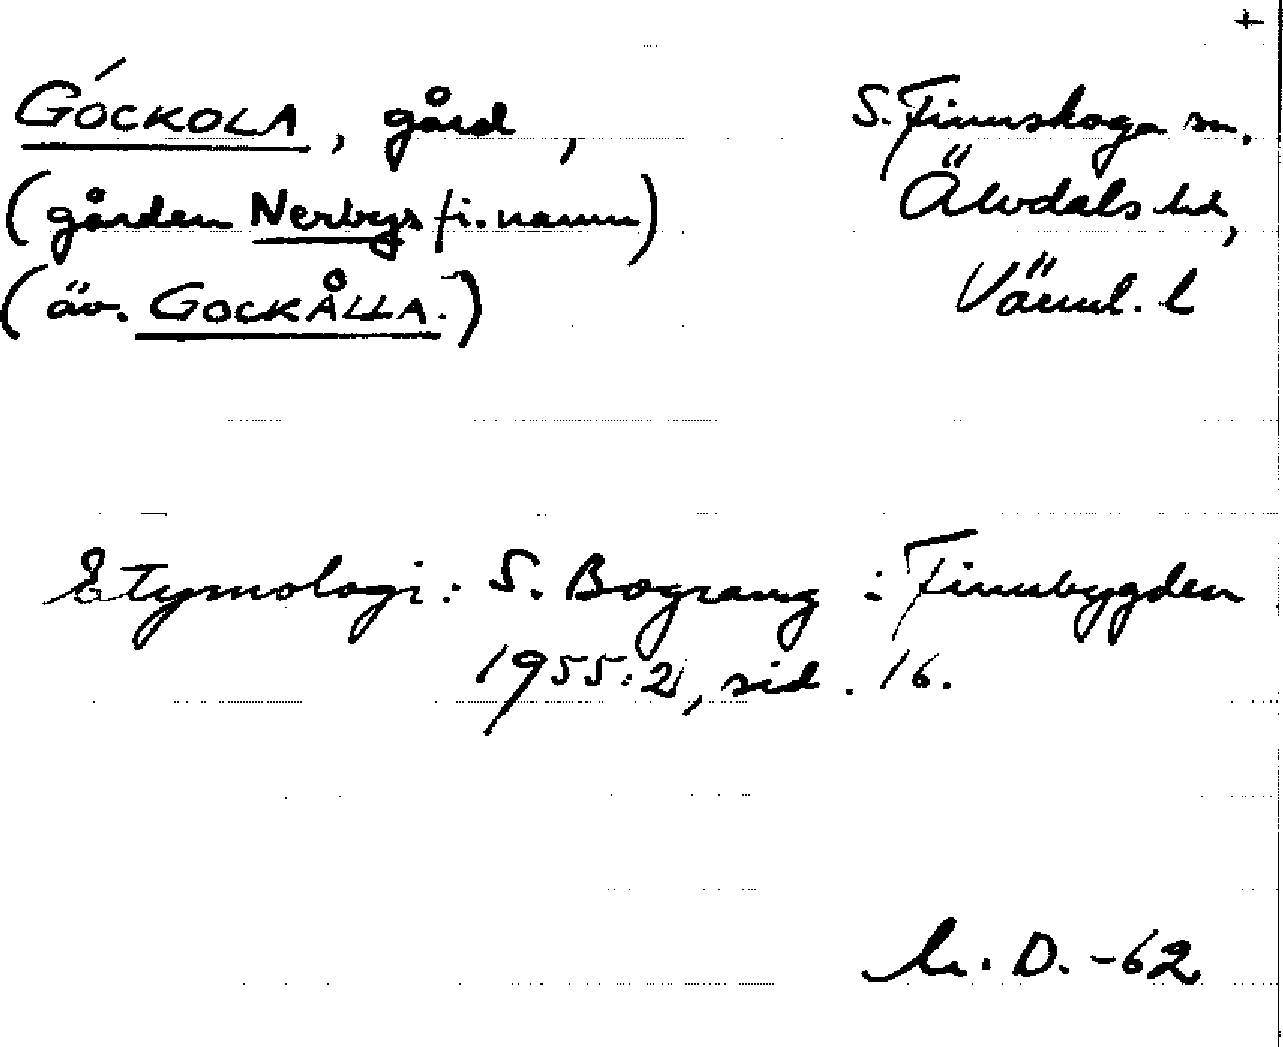 +
GÓCKOLA, gård, S. Finnskoga sn,
(gården Nerbys fi. namn) Älvdals hd,
(äv. GOCKÅLLA.) Värml. l
Etymologi: S. Bograng : Finnbygden
1955:2, sid. 16.
D. -62